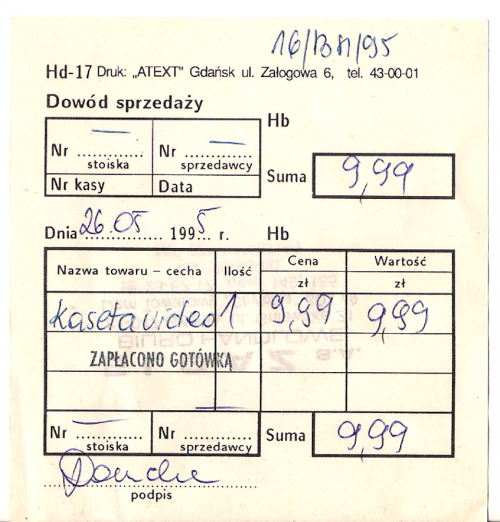 16/BH/95
Hd-17 Druk: „ATEXT" Gdańsk ul. Załogowa 6, tel. 43-00-01
Dowód sprzedaży
Hb
Nr ............. — stoiska
Nr ............. — sprzedawcy
Suma 9,99
Nr kasy Data
Dnia 26.05 1995 r. Hb
Nazwa towaru – cecha Ilość Cena zł Wartość zł
kaseta video 1 9,99 9,99
ZAPŁACONO GOTÓWKĄ
Nr ............. — stoiska
Nr ............. sprzedawcy
Suma 9,99
podpis